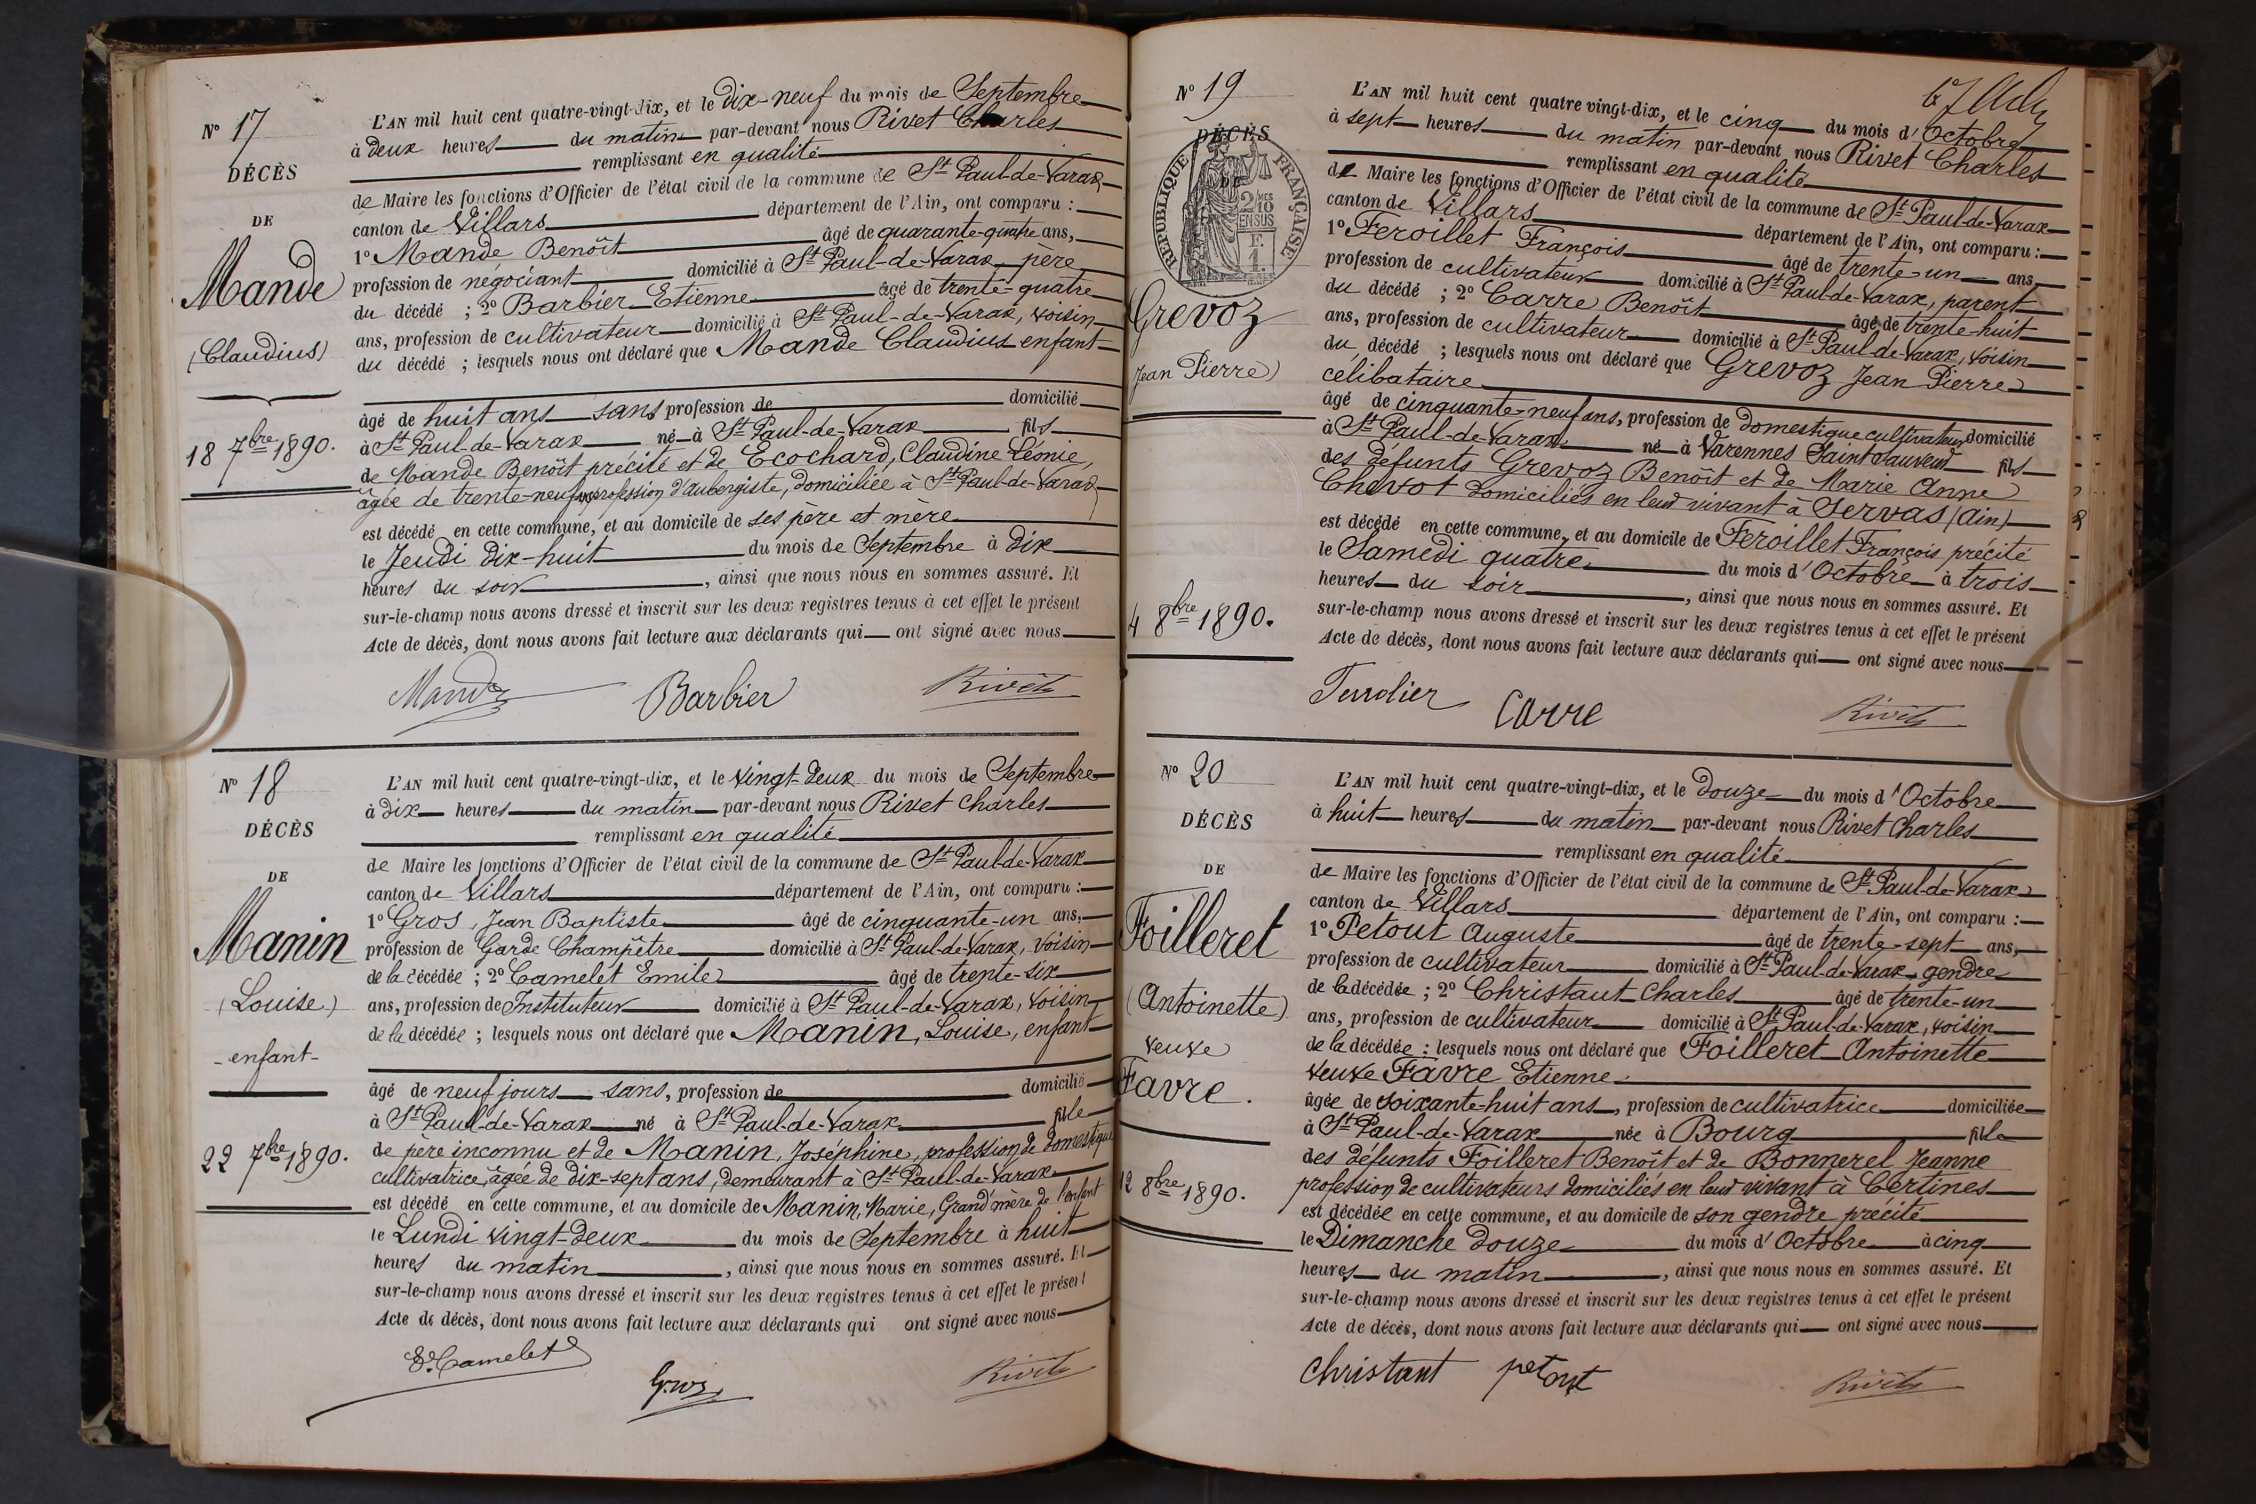 N° 17
DÉCÈS
DE
Mande
(Claudius)
18 7bre 1890.
L'AN mil huit cent quatre-vingt-dix, et le dix-neuf du mois de Septembre
à deux heures du matin par-devant nous Rivet Charles
remplissant en qualité
de Maire les fonctions d'Officier de l'état civil de la commune de St Paul-de-Varax
canton de Villars département de l'Ain, ont comparu :
1° Mande Benoît âgé de quarante-quatre ans,
profession de négociant domicilié à St Paul-de-Varax père
du décédé ; 2° Barbier Etienne âgé de trente-quatre
ans, profession de cultivateur domicilié à St Paul-de-Varax, voisin
du décédé ; lesquels nous ont déclaré que Mande Claudius enfant
âgé de huit ans sans profession de domicilié
à St Paul-de-Varax né à St Paul-de-Varax fils
de Mande Benoît précité et de Ecochard, Claudine Léonie,
âgée de trente-neuf ans profession d'aubergiste, domiciliée à St Paul-de-Varax
est décédé en cette commune, et au domicile de ses père et mère
le Jeudi dix-huit du mois de Septembre à dix
heures du soir, ainsi que nous nous en sommes assuré. Et
sur-le-champ nous avons dressé et inscrit sur les deux registres tenus à cet effet le présent
Acte de décès, dont nous avons fait lecture aux déclarants qui ont signé avec nous
Mande Barbier Rivet
N° 18
DÉCÈS
DE
Manin
(Louise)
- enfant -
22 7bre 1890.
L'AN mil huit cent quatre-vingt-dix, et le vingt-deux du mois de Septembre
à dix heures du matin par-devant nous Rivet Charles
remplissant en qualité
de Maire les fonctions d'Officier de l'état civil de la commune de St Paul-de-Varax
canton de Villars département de l'Ain, ont comparu :
1° Gros, Jean Baptiste âgé de cinquante-un ans,
profession de Garde Champêtre domicilié à St Paul-de-Varax, voisin
de la décédée ; 2° Camelet Emile âgé de trente-six
ans, profession de Instituteur domicilié à St Paul-de-Varax, voisin
de la décédée ; lesquels nous ont déclaré que Manin, Louise, enfant
âgé de neuf jours sans, profession de domicilié
à St Paul-de-Varax né à St Paul-de-Varax fille
de père inconnu et de Manin, Joséphine, profession de domestique
cultivatrice, âgée de dix-sept ans, demeurant à St Paul-de-Varax
est décédé en cette commune, et au domicile de Manin, Marie, Grand'mère de l'enfant
le Lundi vingt-deux du mois de Septembre à huit
heures du matin, ainsi que nous nous en sommes assuré. Et
sur-le-champ nous avons dressé et inscrit sur les deux registres tenus à cet effet le présent
Acte de décès, dont nous avons fait lecture aux déclarants qui ont signé avec nous
E. Camelet Gros Rivet
N° 19
DÉCÈS
DE
RÉPUBLIQUE FRANÇAISE
2 MES
10
EN SUS
F.
1.
Grevoz
Jean Pierre)
4 8bre 1890.
L'AN mil huit cent quatre-vingt-dix, et le cinq du mois d'Octobre
à sept heures du matin par-devant nous Rivet Charles
remplissant en qualité
de Maire les fonctions d'Officier de l'état civil de la commune de St Paul-de-Varax
canton de Villars département de l'Ain, ont comparu :
1° Feroillet François âgé de trente-un ans,
profession de cultivateur domicilié à St Paul-de-Varax, parent
du décédé ; 2° Carre Benoît âgé de trente-huit
ans, profession de cultivateur domicilié à St Paul-de-Varax, voisin
du décédé ; lesquels nous ont déclaré que Grevoz Jean Pierre
célibataire
âgé de cinquante-neuf ans, profession de domestique cultivateur domicilié
à St Paul-de-Varax né à Varennes Saint Sauveur fils
des défunts Grevoz Benoît et de Marie Anne
Chevot domiciliés en leur vivant à Servas (Ain)
est décédé en cette commune, et au domicile de Feroillet François précité
le Samedi quatre du mois d'Octobre à trois
heures du soir, ainsi que nous nous en sommes assuré. Et
sur-le-champ nous avons dressé et inscrit sur les deux registres tenus à cet effet le présent
Acte de décès, dont nous avons fait lecture aux déclarants qui ont signé avec nous
Carre Rivet
N° 20
DÉCÈS
DE
Foilleret
(Antoinette)
veuve
Favre.
12 8bre 1890.
L'AN mil huit cent quatre-vingt-dix, et le douze du mois d'Octobre
à huit heures du matin par-devant nous Rivet Charles
remplissant en qualité
de Maire les fonctions d'Officier de l'état civil de la commune de St Paul-de-Varax
canton de Villars département de l'Ain, ont comparu :
1° Petout Auguste âgé de trente-sept ans,
profession de cultivateur domicilié à St Paul-de-Varax gendre
de la décédée ; 2° Christaut Charles âgé de trente-un
ans, profession de cultivateur domicilié à St Paul-de-Varax, voisin
de la décédée ; lesquels nous ont déclaré que Foilleret Antoinette
veuve Favre Etienne
âgée de soixante-huit ans, profession de cultivatrice domiciliée
à St Paul-de-Varax née à Bourg fille
des défunts Foilleret Benoît et de Bonnerel Jeanne
profession de cultivateurs domiciliés en leur vivant à Certines
est décédée en cette commune, et au domicile de son gendre précité
le Dimanche douze du mois d'Octobre à cinq
heures du matin, ainsi que nous nous en sommes assuré. Et
sur-le-champ nous avons dressé et inscrit sur les deux registres tenus à cet effet le présent
Acte de décès, dont nous avons fait lecture aux déclarants qui ont signé avec nous
Christaut petout Rivet